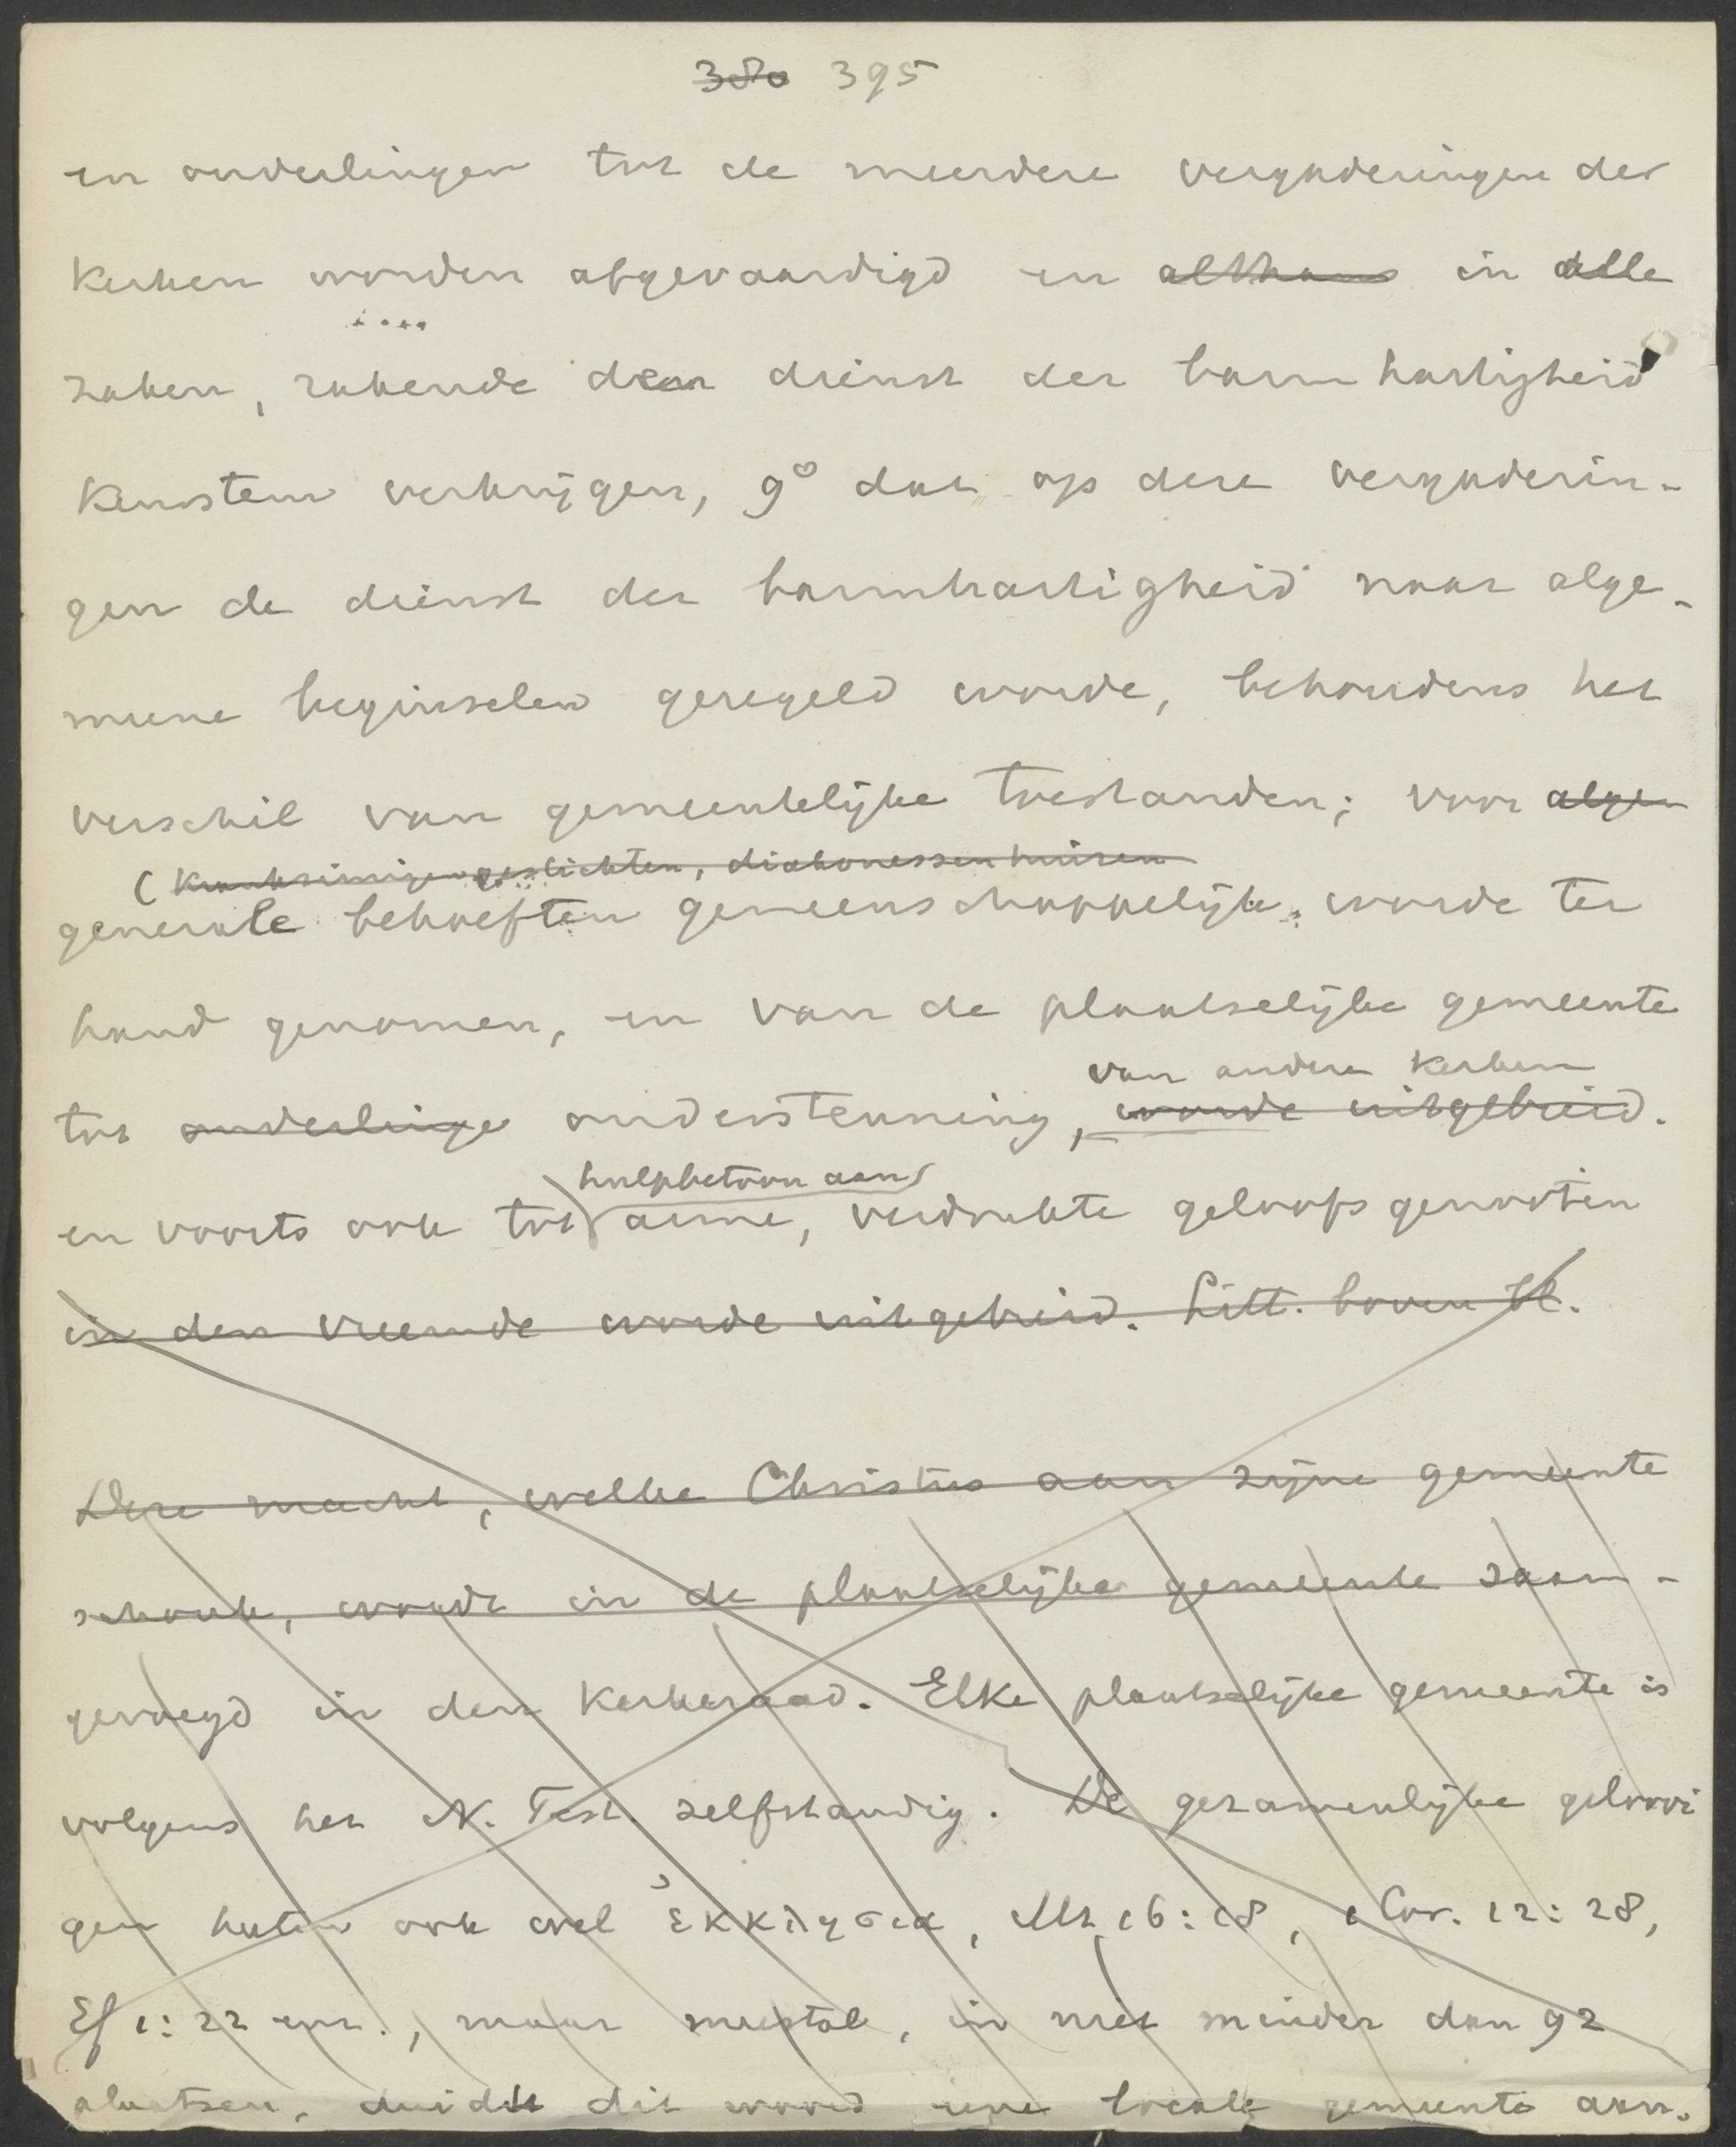 380 395
en ouderlingen tot de meerdere vergaderingen der
kerken worden afgevaardigd en althans in alle
zaken, rakende den dienst der barmhartigheid
keurstem verkrijgen, 9° dat op deze vergaderin-
gen de dienst der barmhartigheid naar alge-
meene beginselen geregeld worde, behoudens het
verschil van gemeentelijke toestanden; voor algem
(krankzinnigengestichten, diakonessenhuizen
generale behoeften gemeenschappelijk worde ter
hand genomen, en van de plaatselijke gemeente
van andere kerken
tot onderlinge ondersteuning, worde uitgebreid.
hulpbetoon aan
en voorts ook tot arme, verdrukte geloofsgenooten
in den vreemde worde uitgebreid. Litt. boven bl.
Deze macht, welke Christus aan zijne gemeente
schonk, wordt in de plaatselijke gemeente saam-
gevoegd in den kerkeraad. Elke plaatselijke gemeente is
volgens het N. Test. zelfstandig. De gezamenlijke geloovi
gen heeten ook wel ἐκκλησια, Mt 16:18, 1 Cor. 12:28,
Ef 1:22 enz., maar meestal, in niet minder dan 92
plaatsen, duidt dit woord eene locale gemeente aan.